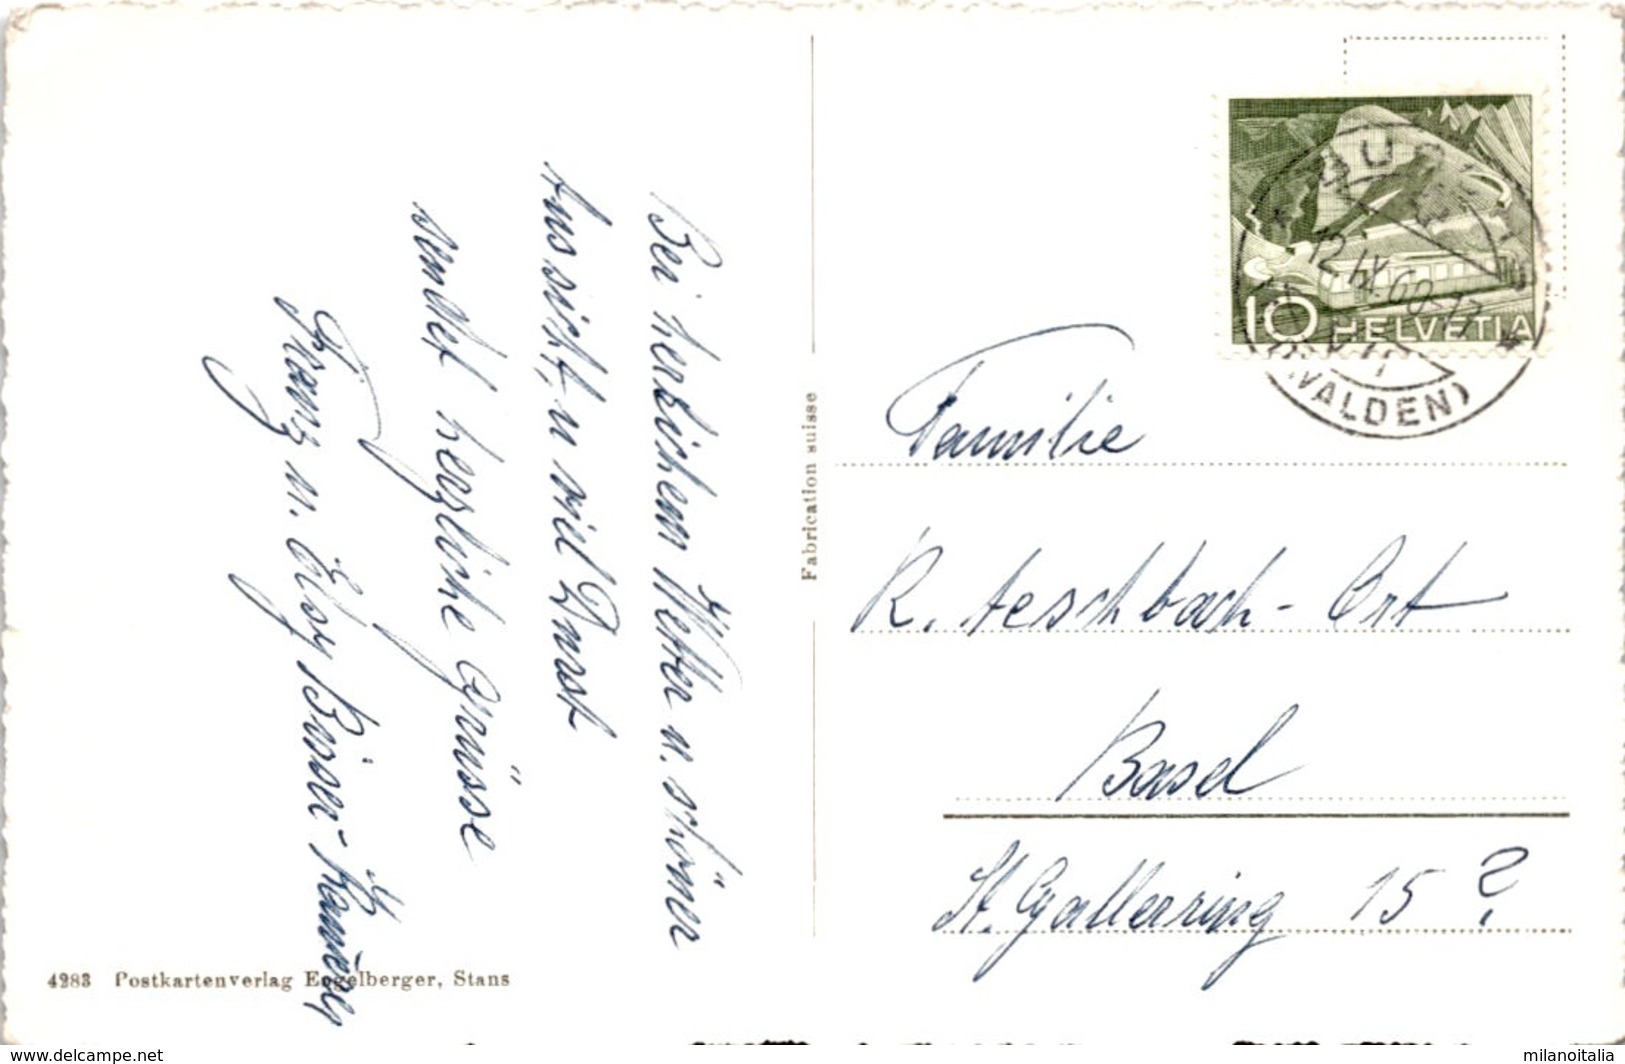 Bei herzlichem Wetter u. schöner
Aussicht, u viel Durst
sendet herzliche Grüsse
Franz u. Elsy Bisser-
4283 Postkartenverlag Engelberger, Stans
Fabrication suisse
12.IX.60-17
WALDEN)
10 HELVETIA
Familie
R. Aeschbach-Ort
Basel
St. Gallerring 15 ?
delcampe.net
milanoitalia